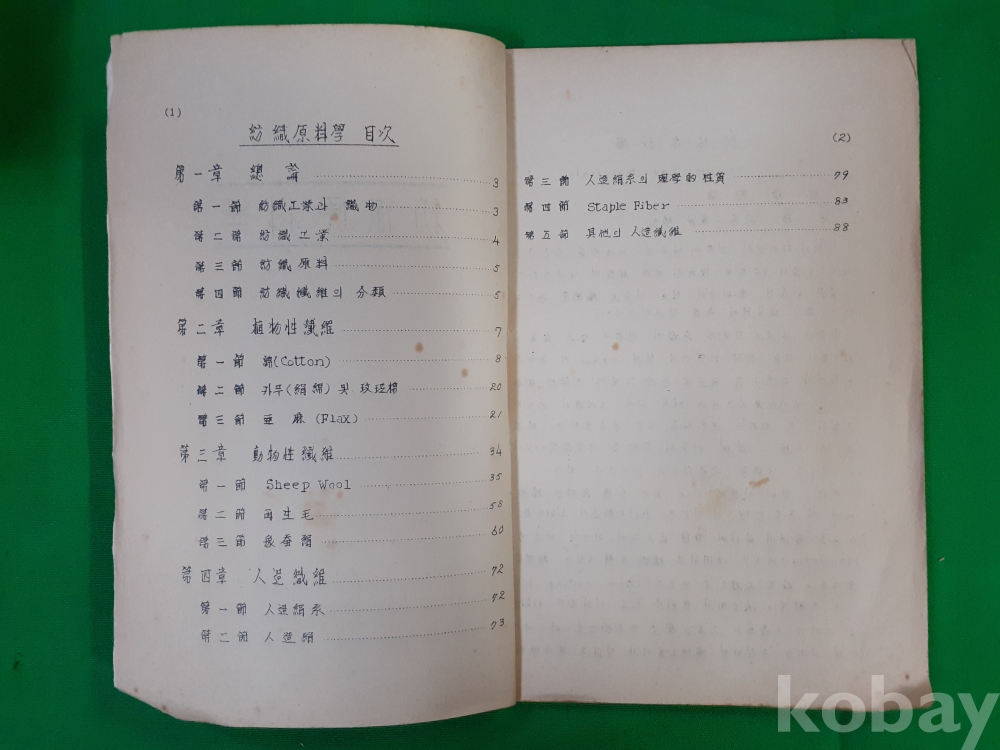 (1)
紡織原料學 目次
第一章 總論 3
第一節 紡織工業과 織物 3
第二節 紡織工業 4
第三節 紡織原料 5
第四節 紡織纖維의 分類 5
第二章 植物性纖維 7
第一節 綿(Cotton) 8
第二節 카푸(絹綿) 및 20
第三節 亜麻 (Flax) 21
第三章 動物性纖維 34
第一節 Sheep Wool 35
第二節 再生毛 58
第三節 家蚕絹 60
第四章 人造纖維 72
第一節 人造絹糸 72
第二節 人造絹 73
(2)
第三節 人造絹糸의 理學的 性質 79
第四節 Staple Fiber 83
第五節 其他의 人造纖維 88
kobay